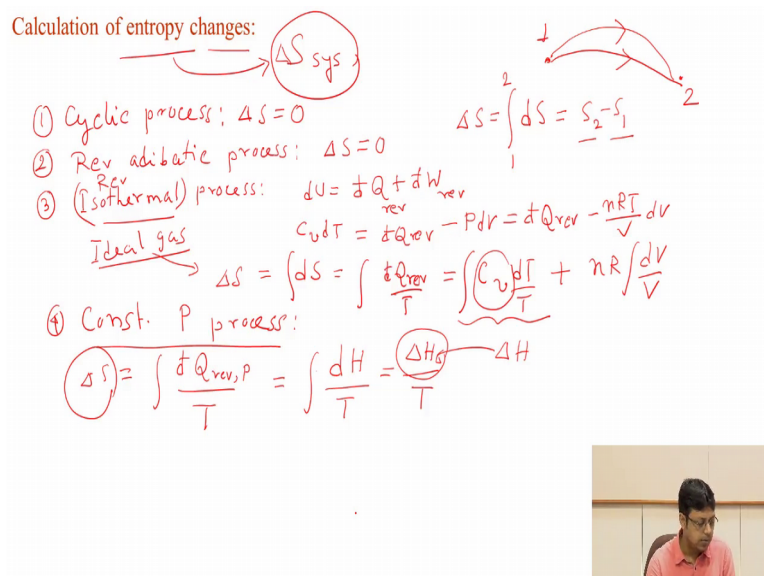 Calculation of entropy changes:
ΔS sys,
1
2
ΔS = ∫₁² dS = S₂ - S₁
① Cyclic process: ΔS = 0
② Rev adibatic process: ΔS = 0
③ (Rev Isothermal) process: dU = đQ rev + đW rev
Ideal gas
CvdT = đQrev - PdV = đQrev - nRT/V dV
ΔS = ∫dS = ∫ đQrev/T = ∫ Cv dT/T + nR ∫ dV/V
④ Const. P process:
ΔS = ∫ đQrev,P/T = ∫ dH/T = ΔH/T — ΔH